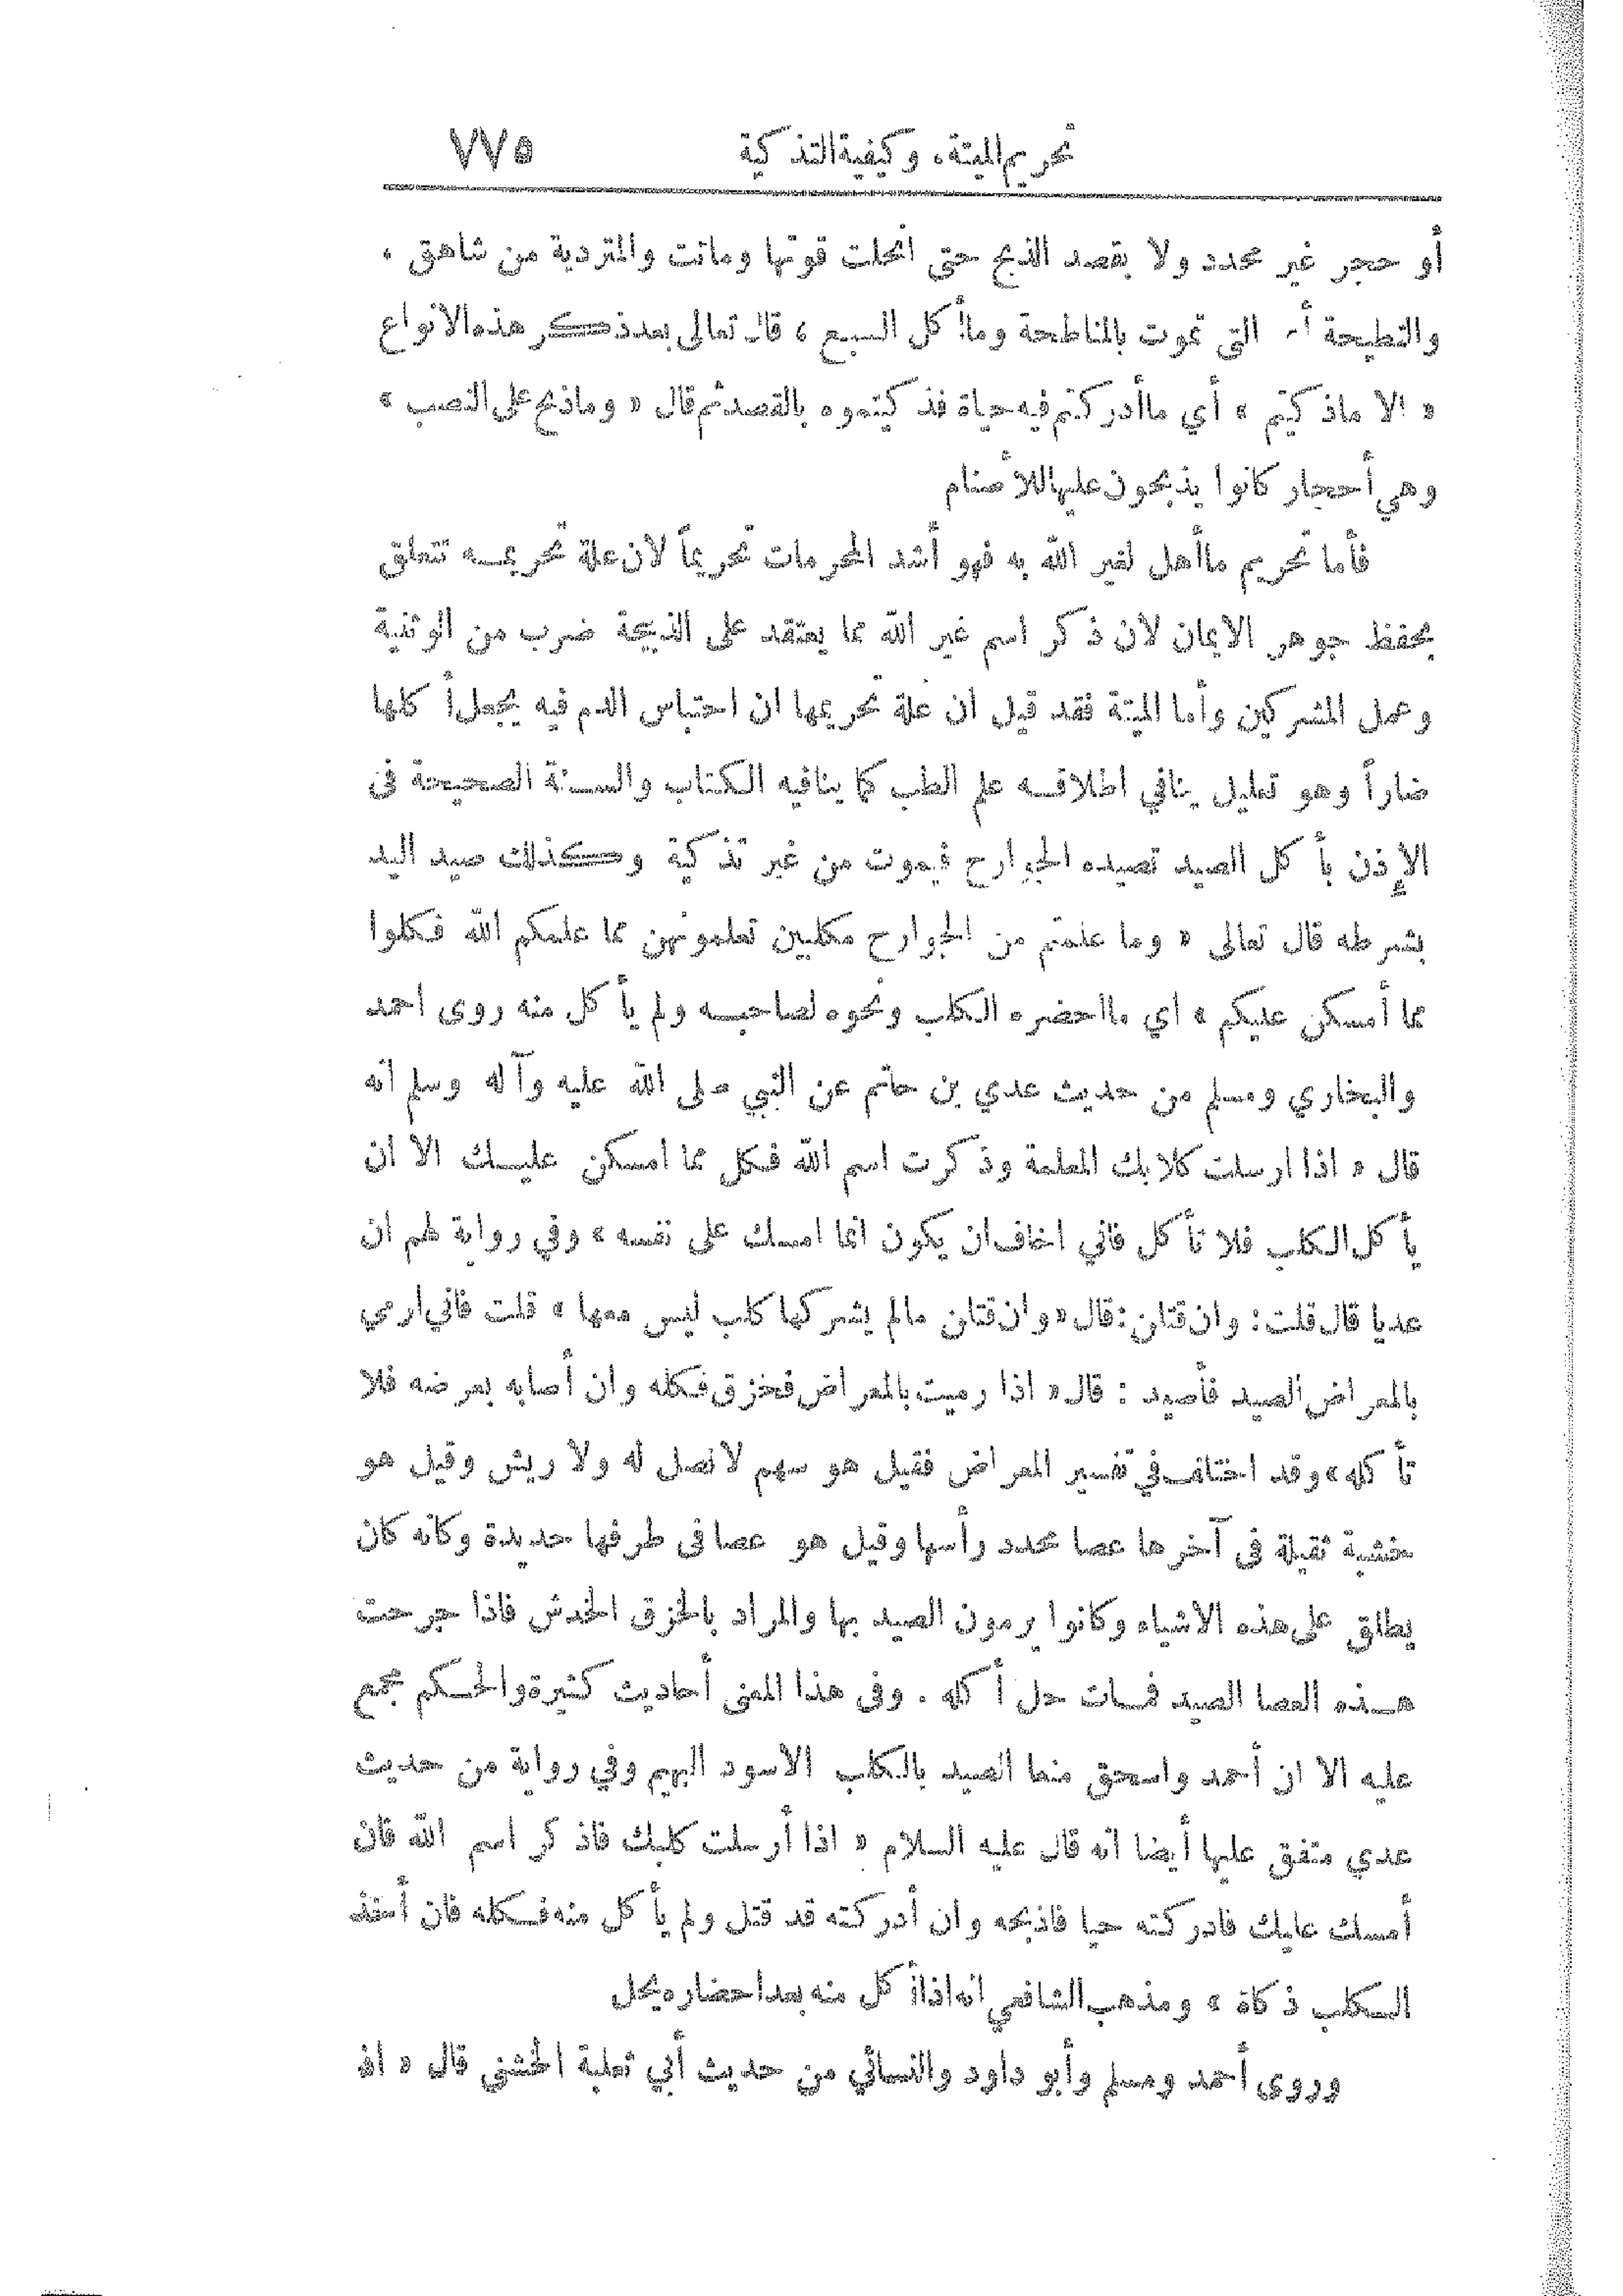 تحريم الميتة، وكيفية التذكية ٧٧٥
أو حجر غير محدد ولا بقصد الذبح حتى انحلت قوتها وماتت والمتردية من شاهق ،
والنطيحة أي التي تموت بالمناطحة وما أكل السبع ، قال تعالى بعد ذكر هذه الانواع
« الا ماذكيتم » أي ماأدركتم فيه حياة فذكيتموه بالقصد ثم قال « وماذبح على النصب »
وهي أحجار كانوا يذبحون عليها للأصنام
فأما تحريم ماأهل لغير الله به فهو أشد المحرمات تحريماً لان علة تحريمه تتعلق
بحفظ جوهر الايمان لان ذكر اسم غير الله مما يعتقد على الذبيحة ضرب من الوثنية
وعمل المشركين وأما الميتة فقد قيل ان علة تحريمها ان احتباس الدم فيه يجعل أكلها
ضاراً وهو تعليل ينافي اطلاقه علم الطب كما ينافيه الكتاب والسنة الصحيحة في
الإذن بأكل الصيد تصيده الجوارح فيموت من غير تذكية وكذلك صيد اليد
بشرطه قال تعالى « وما علمتم من الجوارح مكلبين تعلمونهن مما علمكم الله فكلوا
مما أمسكن عليكم » اي مااحضره الكلب ونحوه لصاحبه ولم يأكل منه روى احمد
والبخاري ومسلم من حديث عدي بن حاتم عن النبي صلى الله عليه وآله وسلم انه
قال « اذا ارسلت كلابك المعلمة وذكرت اسم الله فكل مما امسكن عليك الا ان
يأكل الكلب فلا تأكل فاني اخاف ان يكون انما امسك على نفسه » وفي رواية لهم ان
عديا قال قلت : وان قتلن : قال « وان قتلن مالم يشركها كلب ليس معها » قلت فاني ارمي
بالمعراض الصيد فأصيد : قال « اذا رميت بالمعراض فخزق فكله وان أصابه بعرضه فلا
تأكله » وقد اختلف في تفسير المعراض فقيل هو سهم لانصل له ولا ريش وقيل هو
خشبة ثقيلة في آخرها عصا محدد رأسها وقيل هو عصا في طرفها حديدة وكأنه كان
يطلق على هذه الاشياء وكانوا يرمون الصيد بها والمراد بالخزق الخدش فاذا جرحت
هذه العصا الصيد فمات حل أكله . وفي هذا المعنى أحاديث كثيرة والحكم مجمع
عليه الا ان أحمد واسحق منعا الصيد بالكلب الاسود البهيم وفي رواية من حديث
عدي متفق عليها أيضا انه قال عليه السلام « اذا أرسلت كلبك فاذكر اسم الله فان
أمسك عليك فادركته حيا فاذبحه وان أدركته قد قتل ولم يأكل منه فكله فان أخذ
الكلب ذكاة » ومذهب الشافعي انه اذا أكل منه بعد احضاره يحل
وروى أحمد ومسلم وأبو داود والنسائي من حديث أبي ثعلبة الخشني قال « اذا